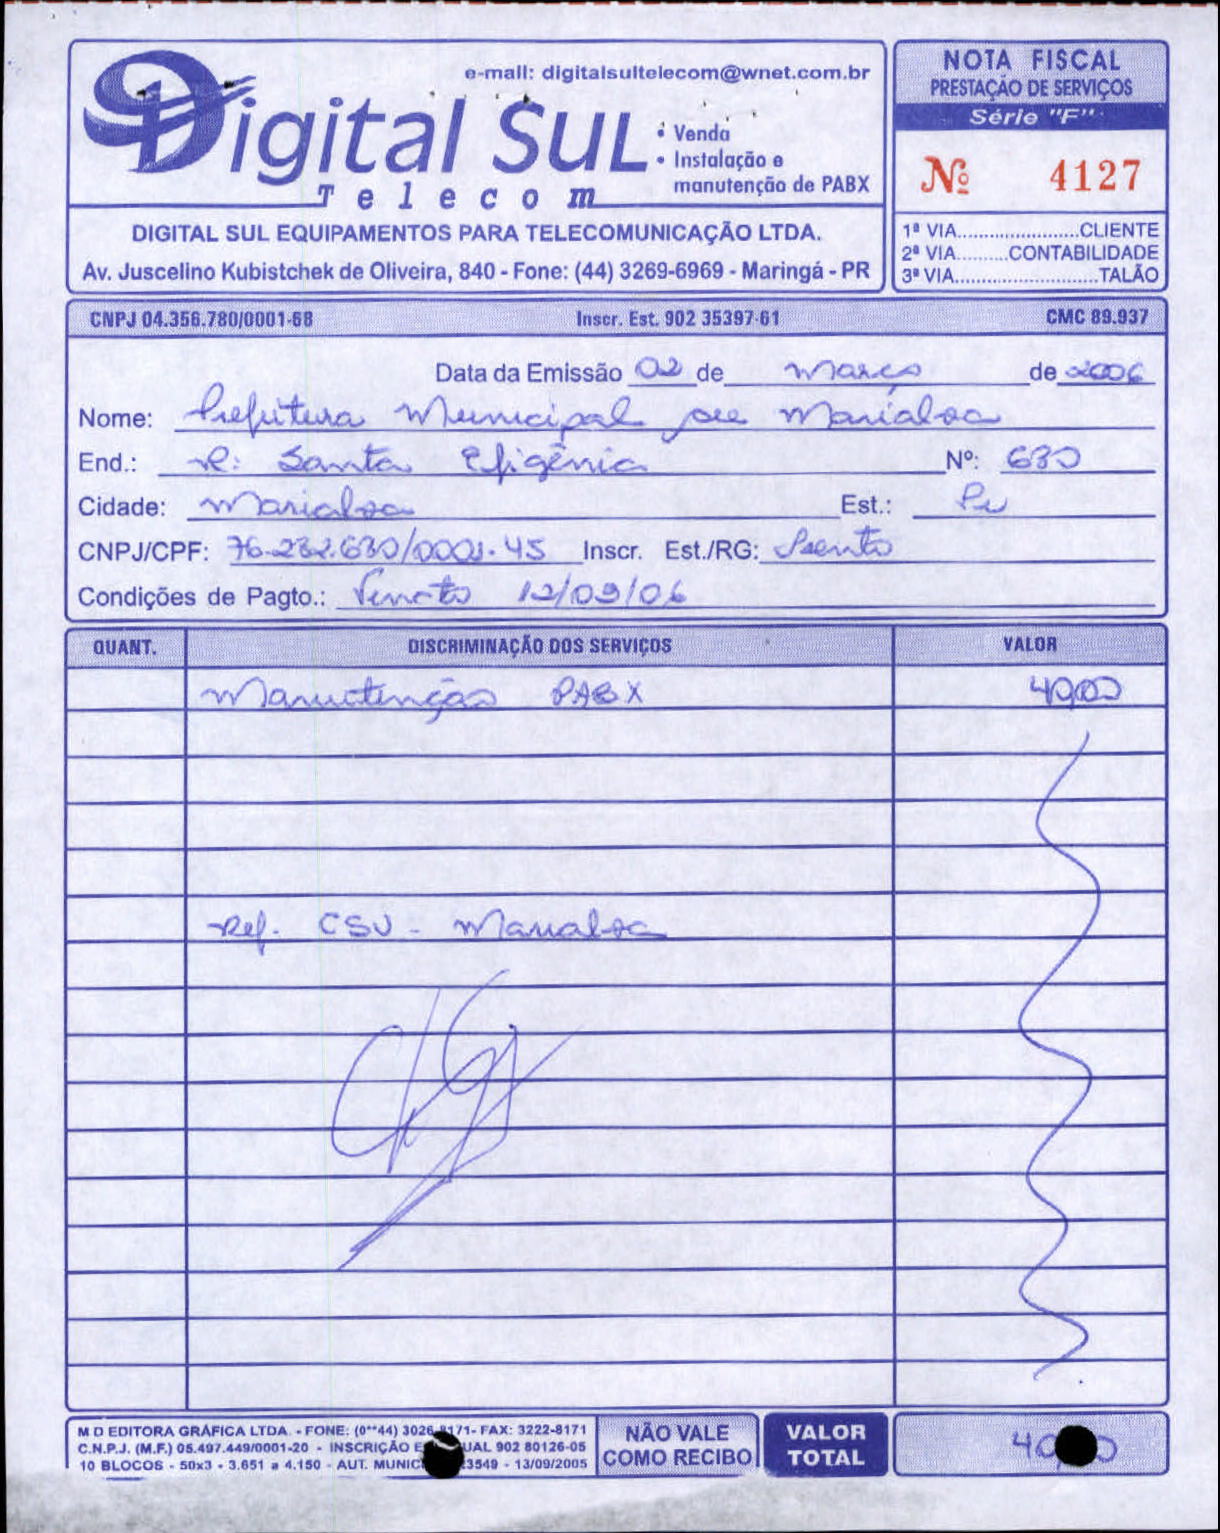 e-mail: digitalsultelecom@wnet.com.br
Digital Sul
Telecom
• Venda
• Instalação e
manutenção de PABX
DIGITAL SUL EQUIPAMENTOS PARA TELECOMUNICAÇÃO LTDA.
Av. Juscelino Kubistchek de Oliveira, 840 - Fone: (44) 3269-6969 - Maringá - PR
NOTA FISCAL
PRESTAÇÃO DE SERVIÇOS
Série "F"
Nº 4127
1ª VIA......................CLIENTE
2ª VIA.........CONTABILIDADE
3ª VIA..........................TALÃO
CNPJ 04.356.780/0001-68 Inscr. Est. 902 35397-61 CMC 89.937
Data da Emissão 02 de Março de 2006
Nome: Prefeitura Municipal de Marialva
End.: R: Santa Efigênia Nº: 680
Cidade: Marialva Est.: Pr
CNPJ/CPF: 76.282.680/0001-45 Inscr. Est./RG: Isento
Condições de Pagto.: Vencto 12/03/06
QUANT. DISCRIMINAÇÃO DOS SERVIÇOS VALOR
Manutenção PABX 40,00
Ref. CSU - Marialva
M D EDITORA GRÁFICA LTDA. - FONE: (0**44) 3026-8171- FAX: 3222-8171
C.N.P.J. (M.F.) 05.497.449/0001-20 - INSCRIÇÃO 902 80126-05
10 BLOCOS - 50x3 - 3.651 a 4.150 - AUT. 3549 - 13/09/2005
NÃO VALE
COMO RECIBO
VALOR
TOTAL